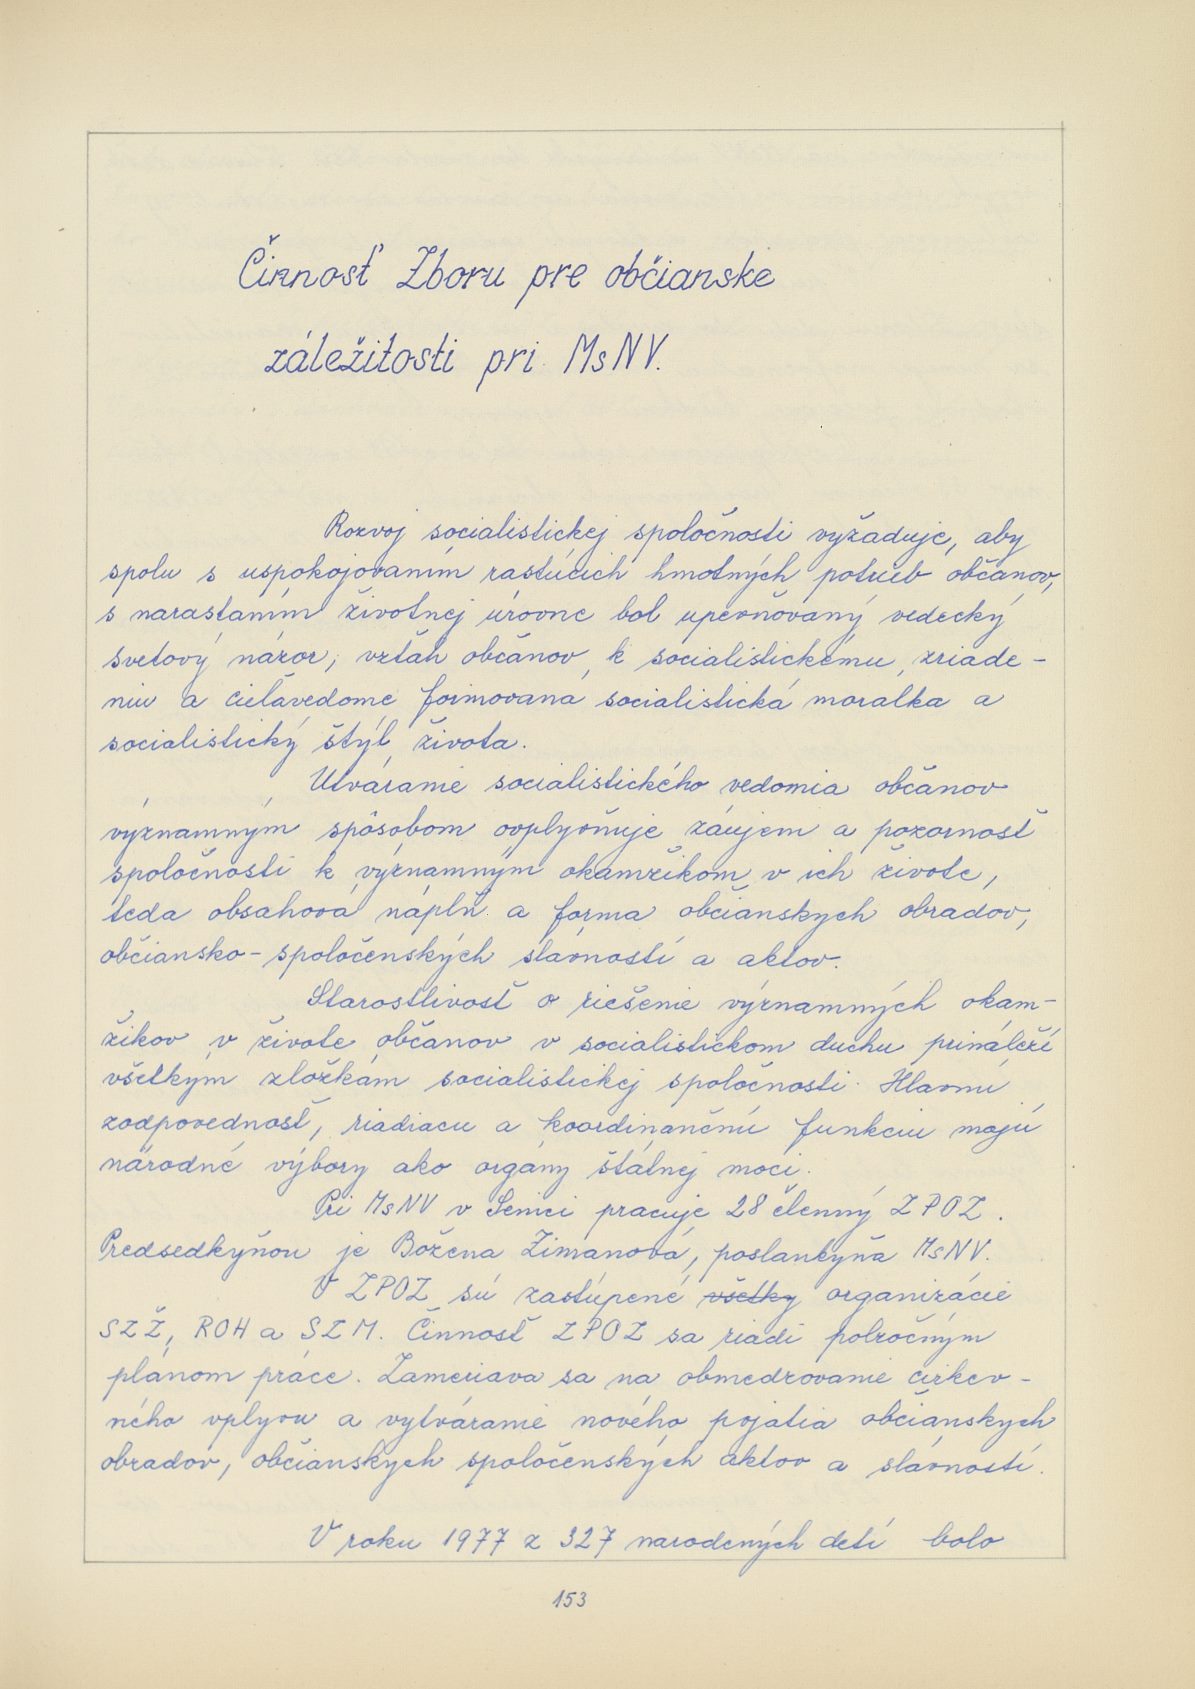 Činnosť Zboru pre občianske
záležitosti pri MsNV.
Rozvoj socialistickej spoločnosti vyžaduje, aby
spolu s uspokojovaním rastúcich hmotných potrieb občanov,
s narastaním životnej úrovne bol upevňovaný vedecký
svetový názor, vzťah občanov k socialistickému zriade-
niu a cieľavedome formovaná socialistická morálka a
socialistický štýl života.
Utváranie socialistického vedomia občanov
významným spôsobom ovplyvňuje záujem a pozornosť
spoločnosti k významným okamžikom v ich živote,
teda obsahová náplň a forma občianskych obradov,
občiansko-spoločenských slávností a aktov.
Starostlivosť o riešenie významných okam-
žikov v živote občanov v socialistickom duchu prináleží
všetkým zložkám socialistickej spoločnosti. Hlavnú
zodpovednosť, riadiacu a koordinančnú funkciu majú
národné výbory ako orgány štátnej moci.
Pri MsNV v Senici pracuje 28 členný ZPOZ.
Predsedkyňou je Božena Zimanová, poslankyňa MsNV.
V ZPOZ sú zastúpené všetky organizácie
SZŽ, ROH a SZM. Činnosť ZPOZ sa riadi polročným
plánom práce. Zameriava sa na obmedzovanie cirkev-
ného vplyvu a vytváranie nového pojatia občianskych
obradov, občianskych spoločenských aktov a slávností.
V roku 1977 z 327 narodených detí bolo
153